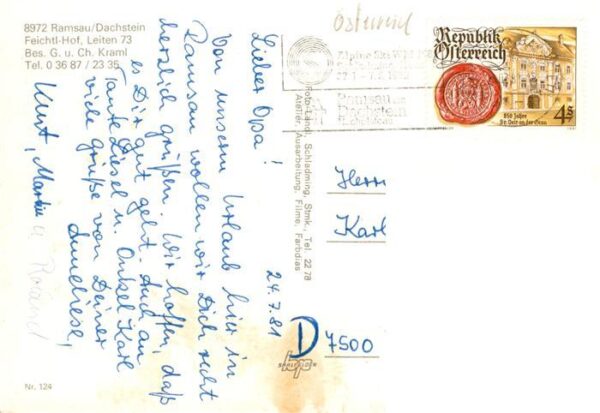 8972 Ramsau/Dachstein
Feichtl-Hof, Leiten 73
Bes. G. u. Ch. Kraml
Tel. 0 36 87 / 23 35
24.7.81
Lieber Opa!
Von unserem Urlaub hier in
Ramsau wollen wir Dich recht
herzlich grüßen. Wir hoffen, daß
es Dir gut geht. Auch an
Tante Liesel u. Onkel Karl
viele grüße von Deiner
Anneliese,
Kurt, Martin u Roland
Nr. 124
Foto-Lanql, Schladming, Stmk., Tel. 22 78
Atelier, Ausarbeitung, Filme, Farbdias
Alpine Ski WM
Ramsau am
Dachstein
Republik
Österreich
850 Jahre
St. Veit an der Glan
4S
1981
Herrn
Karl
D 7500